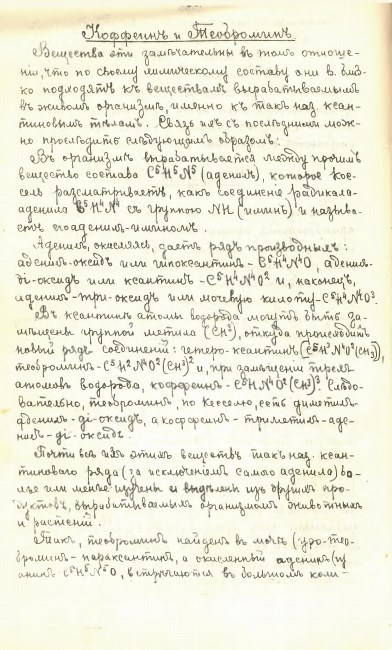 Коффеинъ и Теоброминъ.
Вещества эти замѣчательны въ томъ отноше-
ніи, что по своему химическому составу они в. близ-
ко подходятъ къ веществамъ вырабатываемымъ
въ живомъ организмѣ, именно къ такъ наз. ксан-
тиновымъ тѣламъ. Связь ихъ съ послѣдними мож-
но прослѣдить слѣдующимъ образомъ:
Въ организмѣ вырабатывается между прочимъ
вещество состава C⁵H⁵N⁵ (аденинъ), которое Кос-
сель разсматриваетъ, какъ соединеніе радикала-
аденила C⁵H⁴N⁴ съ группою NH (иминъ) и называ-
етъ его аденилъ-иминомъ.
Аденинъ, окисляясь, даетъ рядъ производныхъ:
аденилъ-оксидъ или гипоксантинъ - C⁵H⁴N⁴O, аденилъ-
ді-оксидъ или ксантинъ - C⁵H⁴N⁴O² и, наконецъ,
аденилъ-три-оксидъ или мочевую кислоту - C⁵H⁴N⁴O³.
Въ ксантинѣ атомы водорода могутъ быть за-
мѣщены группой метила (CH³), откуда происходитъ
новый рядъ соединеній: гетеро-ксантинъ (C⁵H³N⁴O²(CH³)),
теоброминъ - C⁵H²N⁴O²(CH³)² и, при замѣщеніи трехъ
атомовъ водорода, коффеинъ - C⁵HN⁴O²(CH³)³. Слѣдо-
вательно, теоброминъ, по Косселю, есть диметилъ-
аденилъ-ді-оксидъ, а коффеинъ - триметилъ-аде-
нилъ-ді-оксидъ.
Почти всѣ изъ этихъ веществъ такъ наз. ксан-
тиноваго ряда (за исключеніемъ самого аденила) бо-
лѣе или менѣе изучены и выдѣлены изъ другихъ про-
дуктовъ, вырабатываемыхъ организмомъ животныхъ
и растеній.
Такъ, теоброминъ найденъ въ мочѣ (уро-тео-
броминъ - параксантинъ, а окисленный аденинъ (гу
анинъ C⁵H⁵N⁵O, встрѣчаются въ большомъ коли-